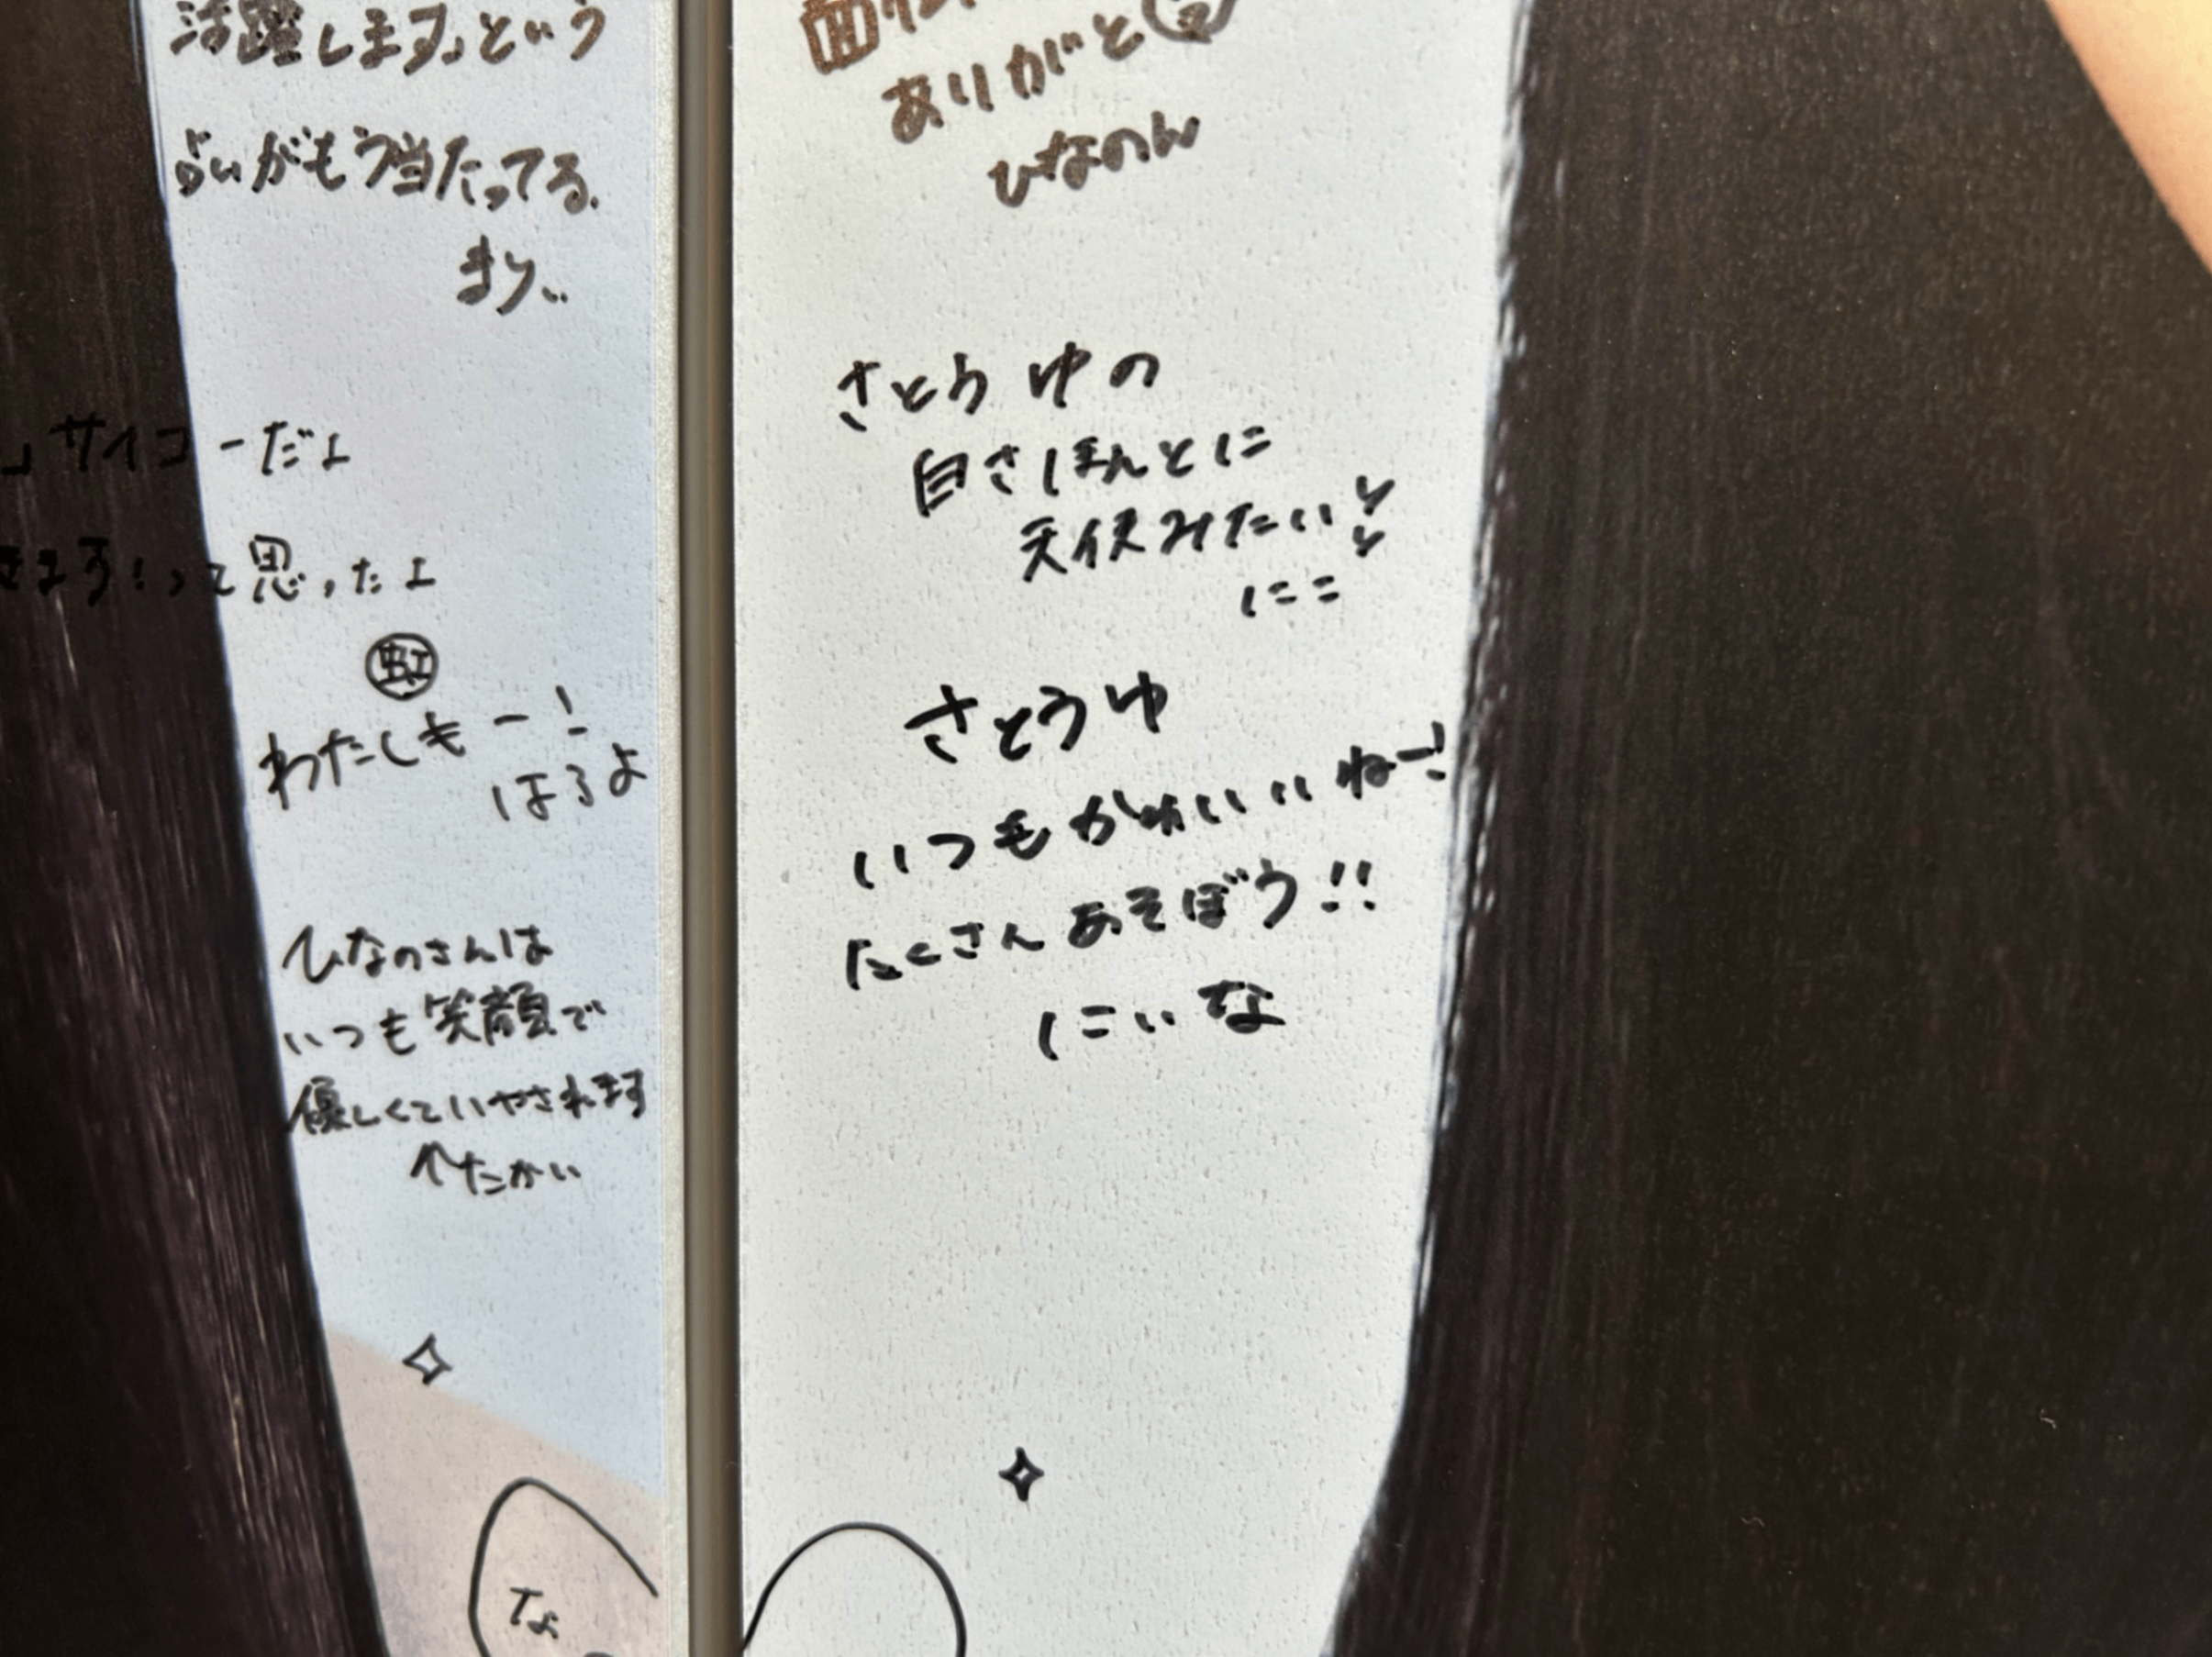 活躍します。」という
占いがもう当たってる。
まり..
」サイコーだよ
きます！って思ったよ
虹
わたしもー！
はるよ
ひなのさんは
いつも笑顔で
優しくていやされます
な
ありがと
ひなのん
さとうゆの
白さほんとに
天使みたい
にこ
さとうゆ
いつもかわいいねー！
たくさんあそぼう!!
にいな